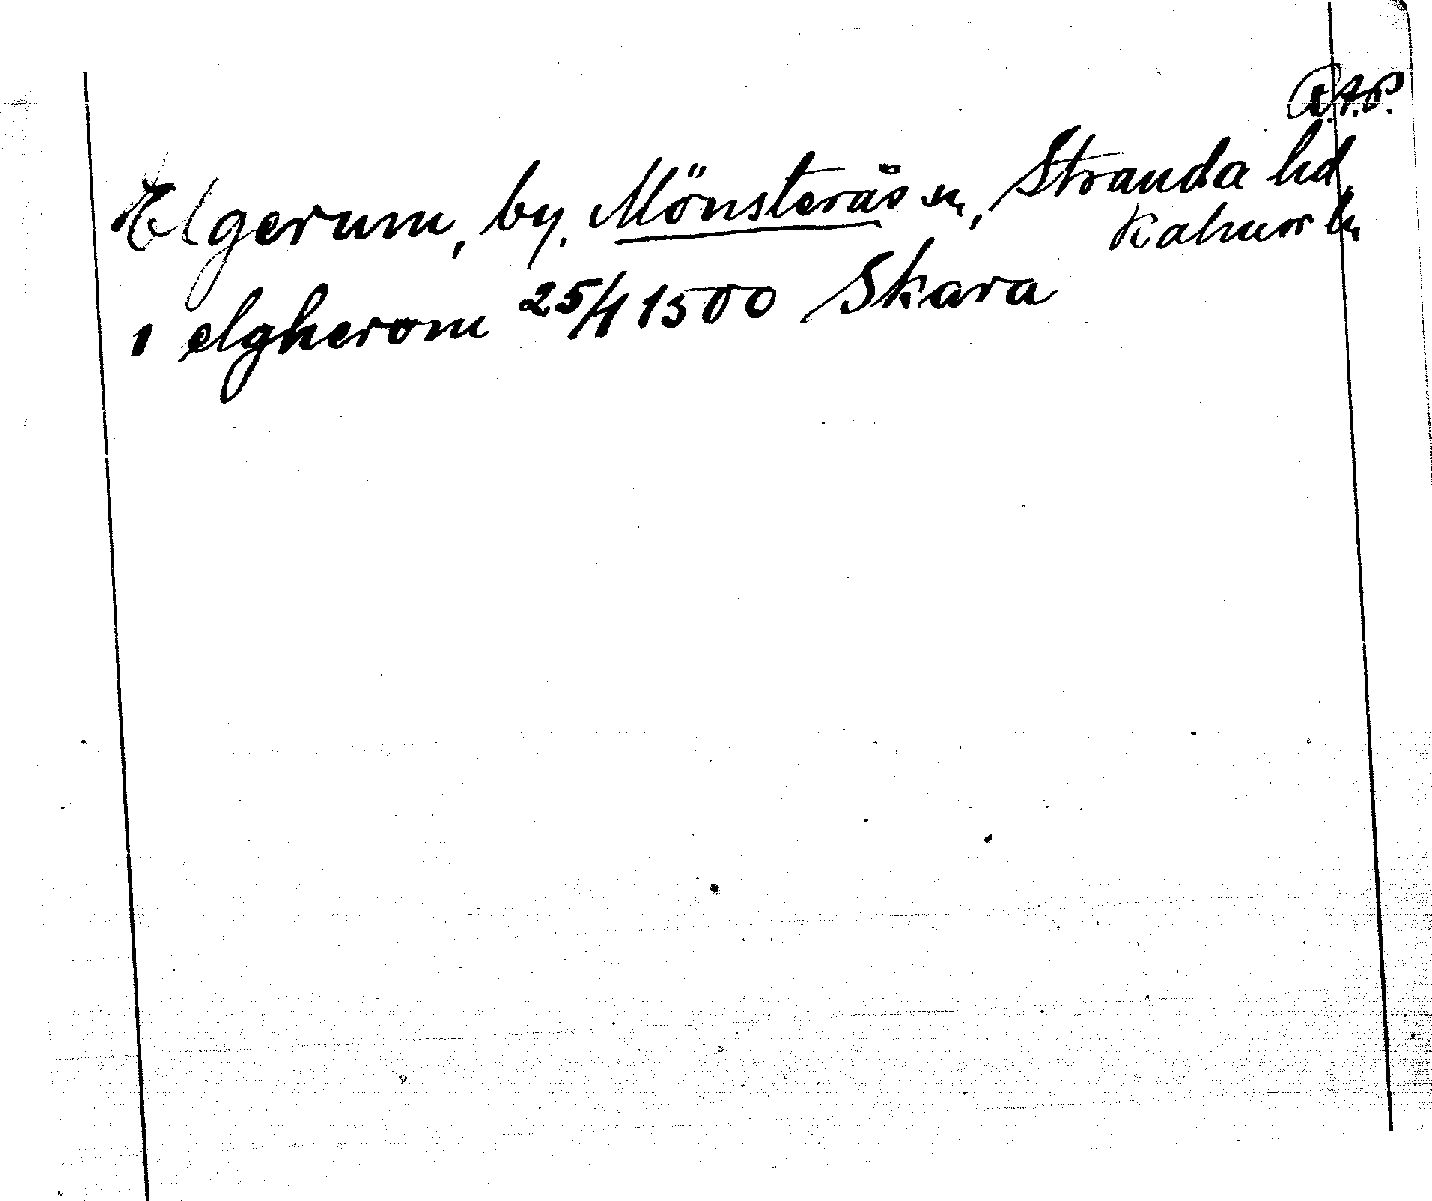 R.A.P.
Elgerum, by, Mönsterås sn, Stranda hd,
Kalmar ln
i elgherom 25/1 1500 Skara